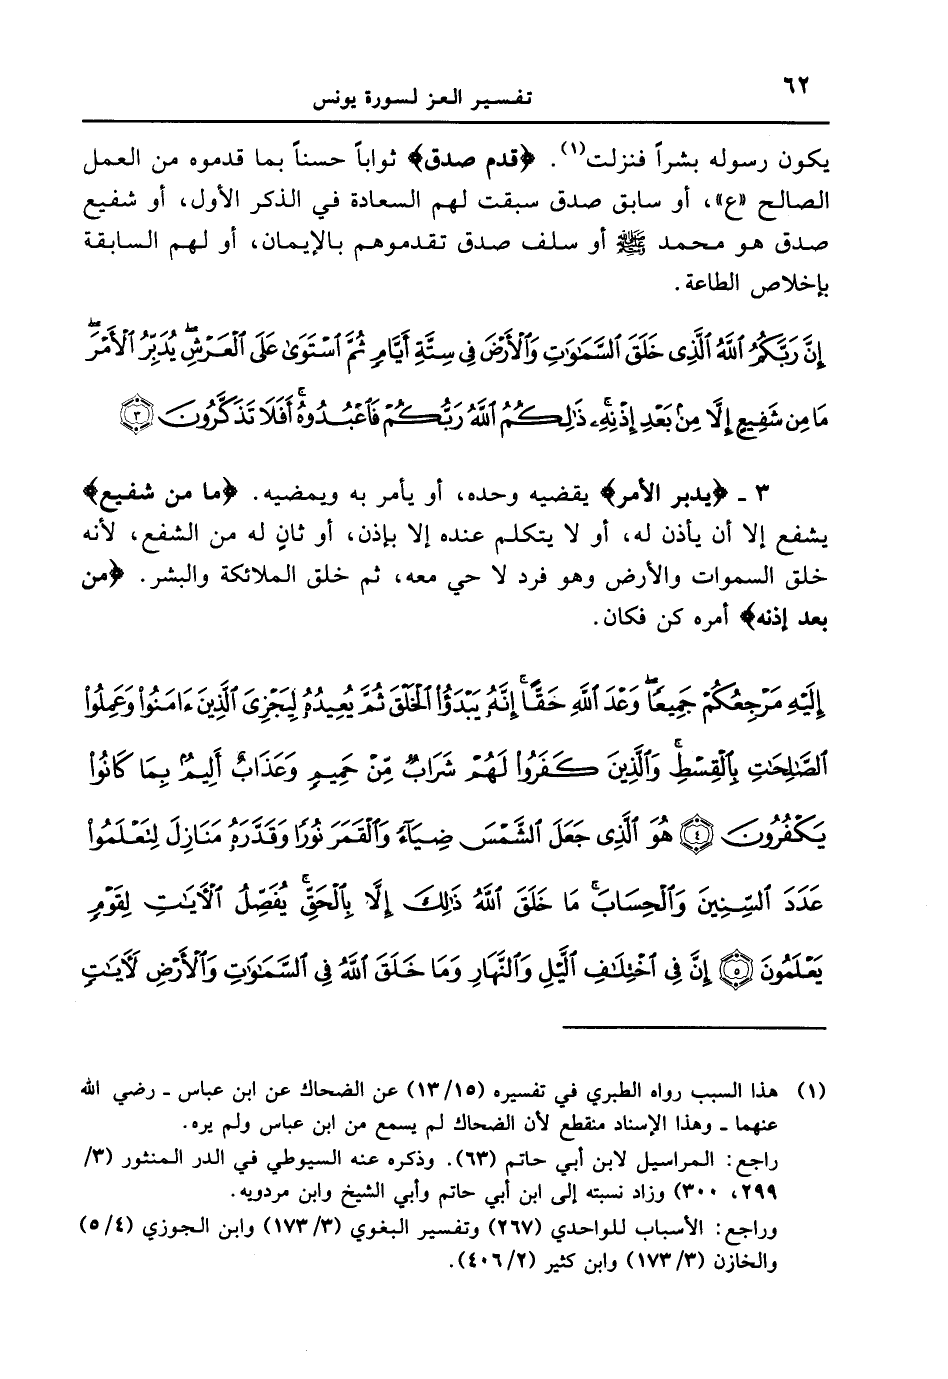 ٦٢
تفسير العز لسورة يونس
يكون رسوله بشراً فنزلت(١). ﴿قدم صدق﴾ ثواباً حسناً بما قدموه من العمل
الصالح «ع»، أو سابق صدق سبقت لهم السعادة في الذكر الأول، أو شفيع
صدق هو محمد ﷺ أو سلف صدق تقدموهم بالإيمان، أو لهم السابقة
بإخلاص الطاعة.
إِنَّ رَبَّكُمُ ٱللَّهُ ٱلَّذِى خَلَقَ ٱلسَّمَـٰوَٰتِ وَٱلْأَرْضَ فِى سِتَّةِ أَيَّامٍ ثُمَّ ٱسْتَوَىٰ عَلَى ٱلْعَرْشِ ۖ يُدَبِّرُ ٱلْأَمْرَ ۖ
مَا مِن شَفِيعٍ إِلَّا مِنۢ بَعْدِ إِذْنِهِۦ ۚ ذَٰلِكُمُ ٱللَّهُ رَبُّكُمْ فَٱعْبُدُوهُ ۚ أَفَلَا تَذَكَّرُونَ ٣
٣ - ﴿يدبر الأمر﴾ يقضيه وحده، أو يأمر به ويمضيه. ﴿ما من شفيع﴾
يشفع إلا أن يأذن له، أو لا يتكلم عنده إلا بإذن، أو ثانٍ له من الشفع، لأنه
خلق السموات والأرض وهو فرد لا حي معه، ثم خلق الملائكة والبشر. ﴿من
بعد إذنه﴾ أمره كن فكان.
إِلَيْهِ مَرْجِعُكُمْ جَمِيعًا ۖ وَعْدَ ٱللَّهِ حَقًّا ۚ إِنَّهُۥ يَبْدَؤُا۟ ٱلْخَلْقَ ثُمَّ يُعِيدُهُۥ لِيَجْزِىَ ٱلَّذِينَ ءَامَنُوا۟ وَعَمِلُوا۟
ٱلصَّـٰلِحَـٰتِ بِٱلْقِسْطِ ۚ وَٱلَّذِينَ كَفَرُوا۟ لَهُمْ شَرَابٌ مِّنْ حَمِيمٍ وَعَذَابٌ أَلِيمٌۢ بِمَا كَانُوا۟
يَكْفُرُونَ ٤ هُوَ ٱلَّذِى جَعَلَ ٱلشَّمْسَ ضِيَآءً وَٱلْقَمَرَ نُورًا وَقَدَّرَهُۥ مَنَازِلَ لِتَعْلَمُوا۟
عَدَدَ ٱلسِّنِينَ وَٱلْحِسَابَ ۚ مَا خَلَقَ ٱللَّهُ ذَٰلِكَ إِلَّا بِٱلْحَقِّ ۚ يُفَصِّلُ ٱلْـَٔايَـٰتِ لِقَوْمٍ
يَعْلَمُونَ ٥ إِنَّ فِى ٱخْتِلَـٰفِ ٱلَّيْلِ وَٱلنَّهَارِ وَمَا خَلَقَ ٱللَّهُ فِى ٱلسَّمَـٰوَٰتِ وَٱلْأَرْضِ لَـَٔايَـٰتٍ
(١) هذا السبب رواه الطبري في تفسيره (١٣/١٥) عن الضحاك عن ابن عباس - رضي الله
عنهما - وهذا الإسناد منقطع لأن الضحاك لم يسمع من ابن عباس ولم يره.
راجع: المراسيل لابن أبي حاتم (٦٣). وذكره عنه السيوطي في الدر المنثور (٣/
٢٩٩، ٣٠٠) وزاد نسبته إلى ابن أبي حاتم وأبي الشيخ وابن مردويه.
وراجع: الأسباب للواحدي (٢٦٧) وتفسير البغوي (١٧٣/٣) وابن الجوزي (٥/٤)
والخازن (١٧٣/٣) وابن كثير (٤٠٦/٢).